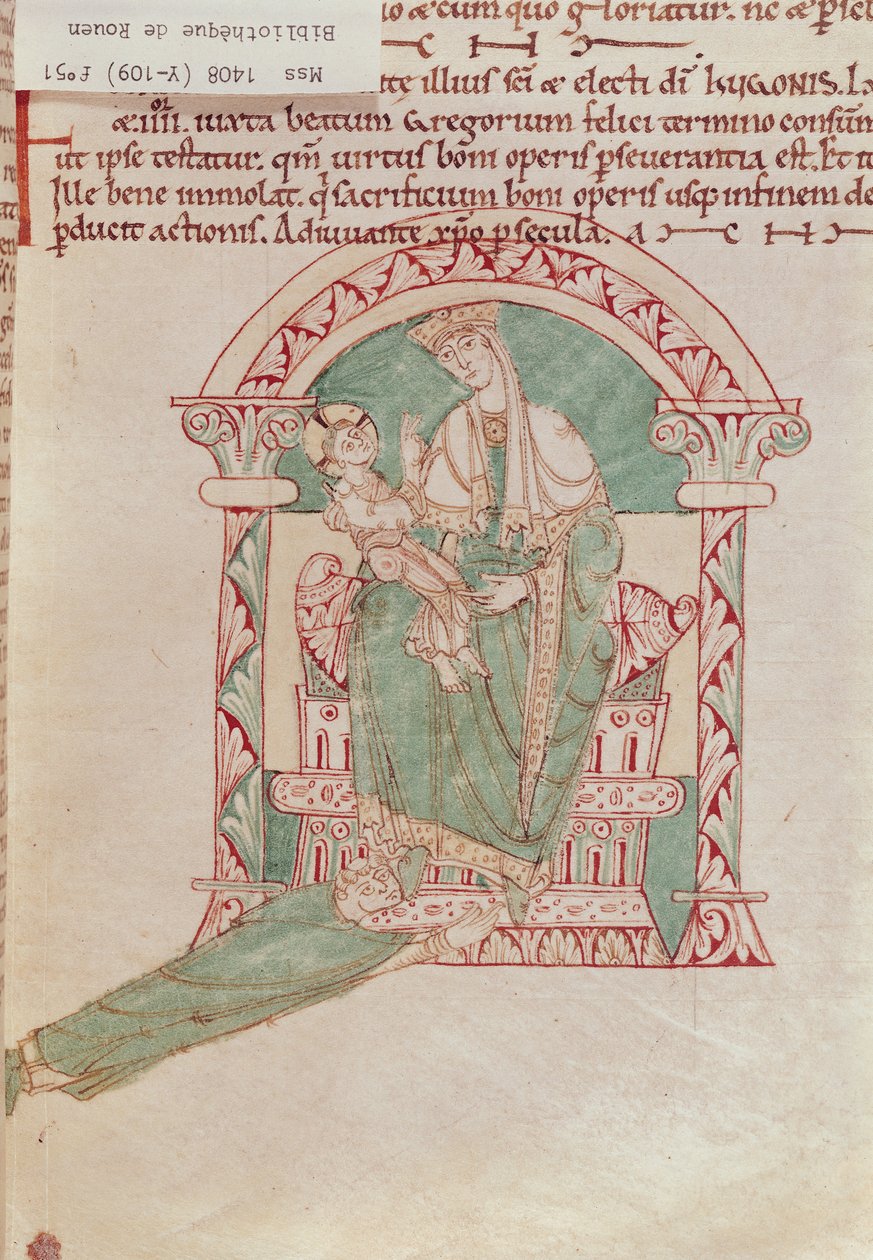 Bibliothèque de Rouen
Mss 1408 (Y-109) f°51
cum quo gloriatur.
illius sci æ electi di hUGONIS.
æ.iiii. iuxta beatum Gregorium felici termino
ut ipse testatur. qm uirtus boni operis pseuerantia est. Et
Ille bene immolat. q sacrificium boni operis usq; infinem de
pducit actionis. Adiuuante xpo p secula.